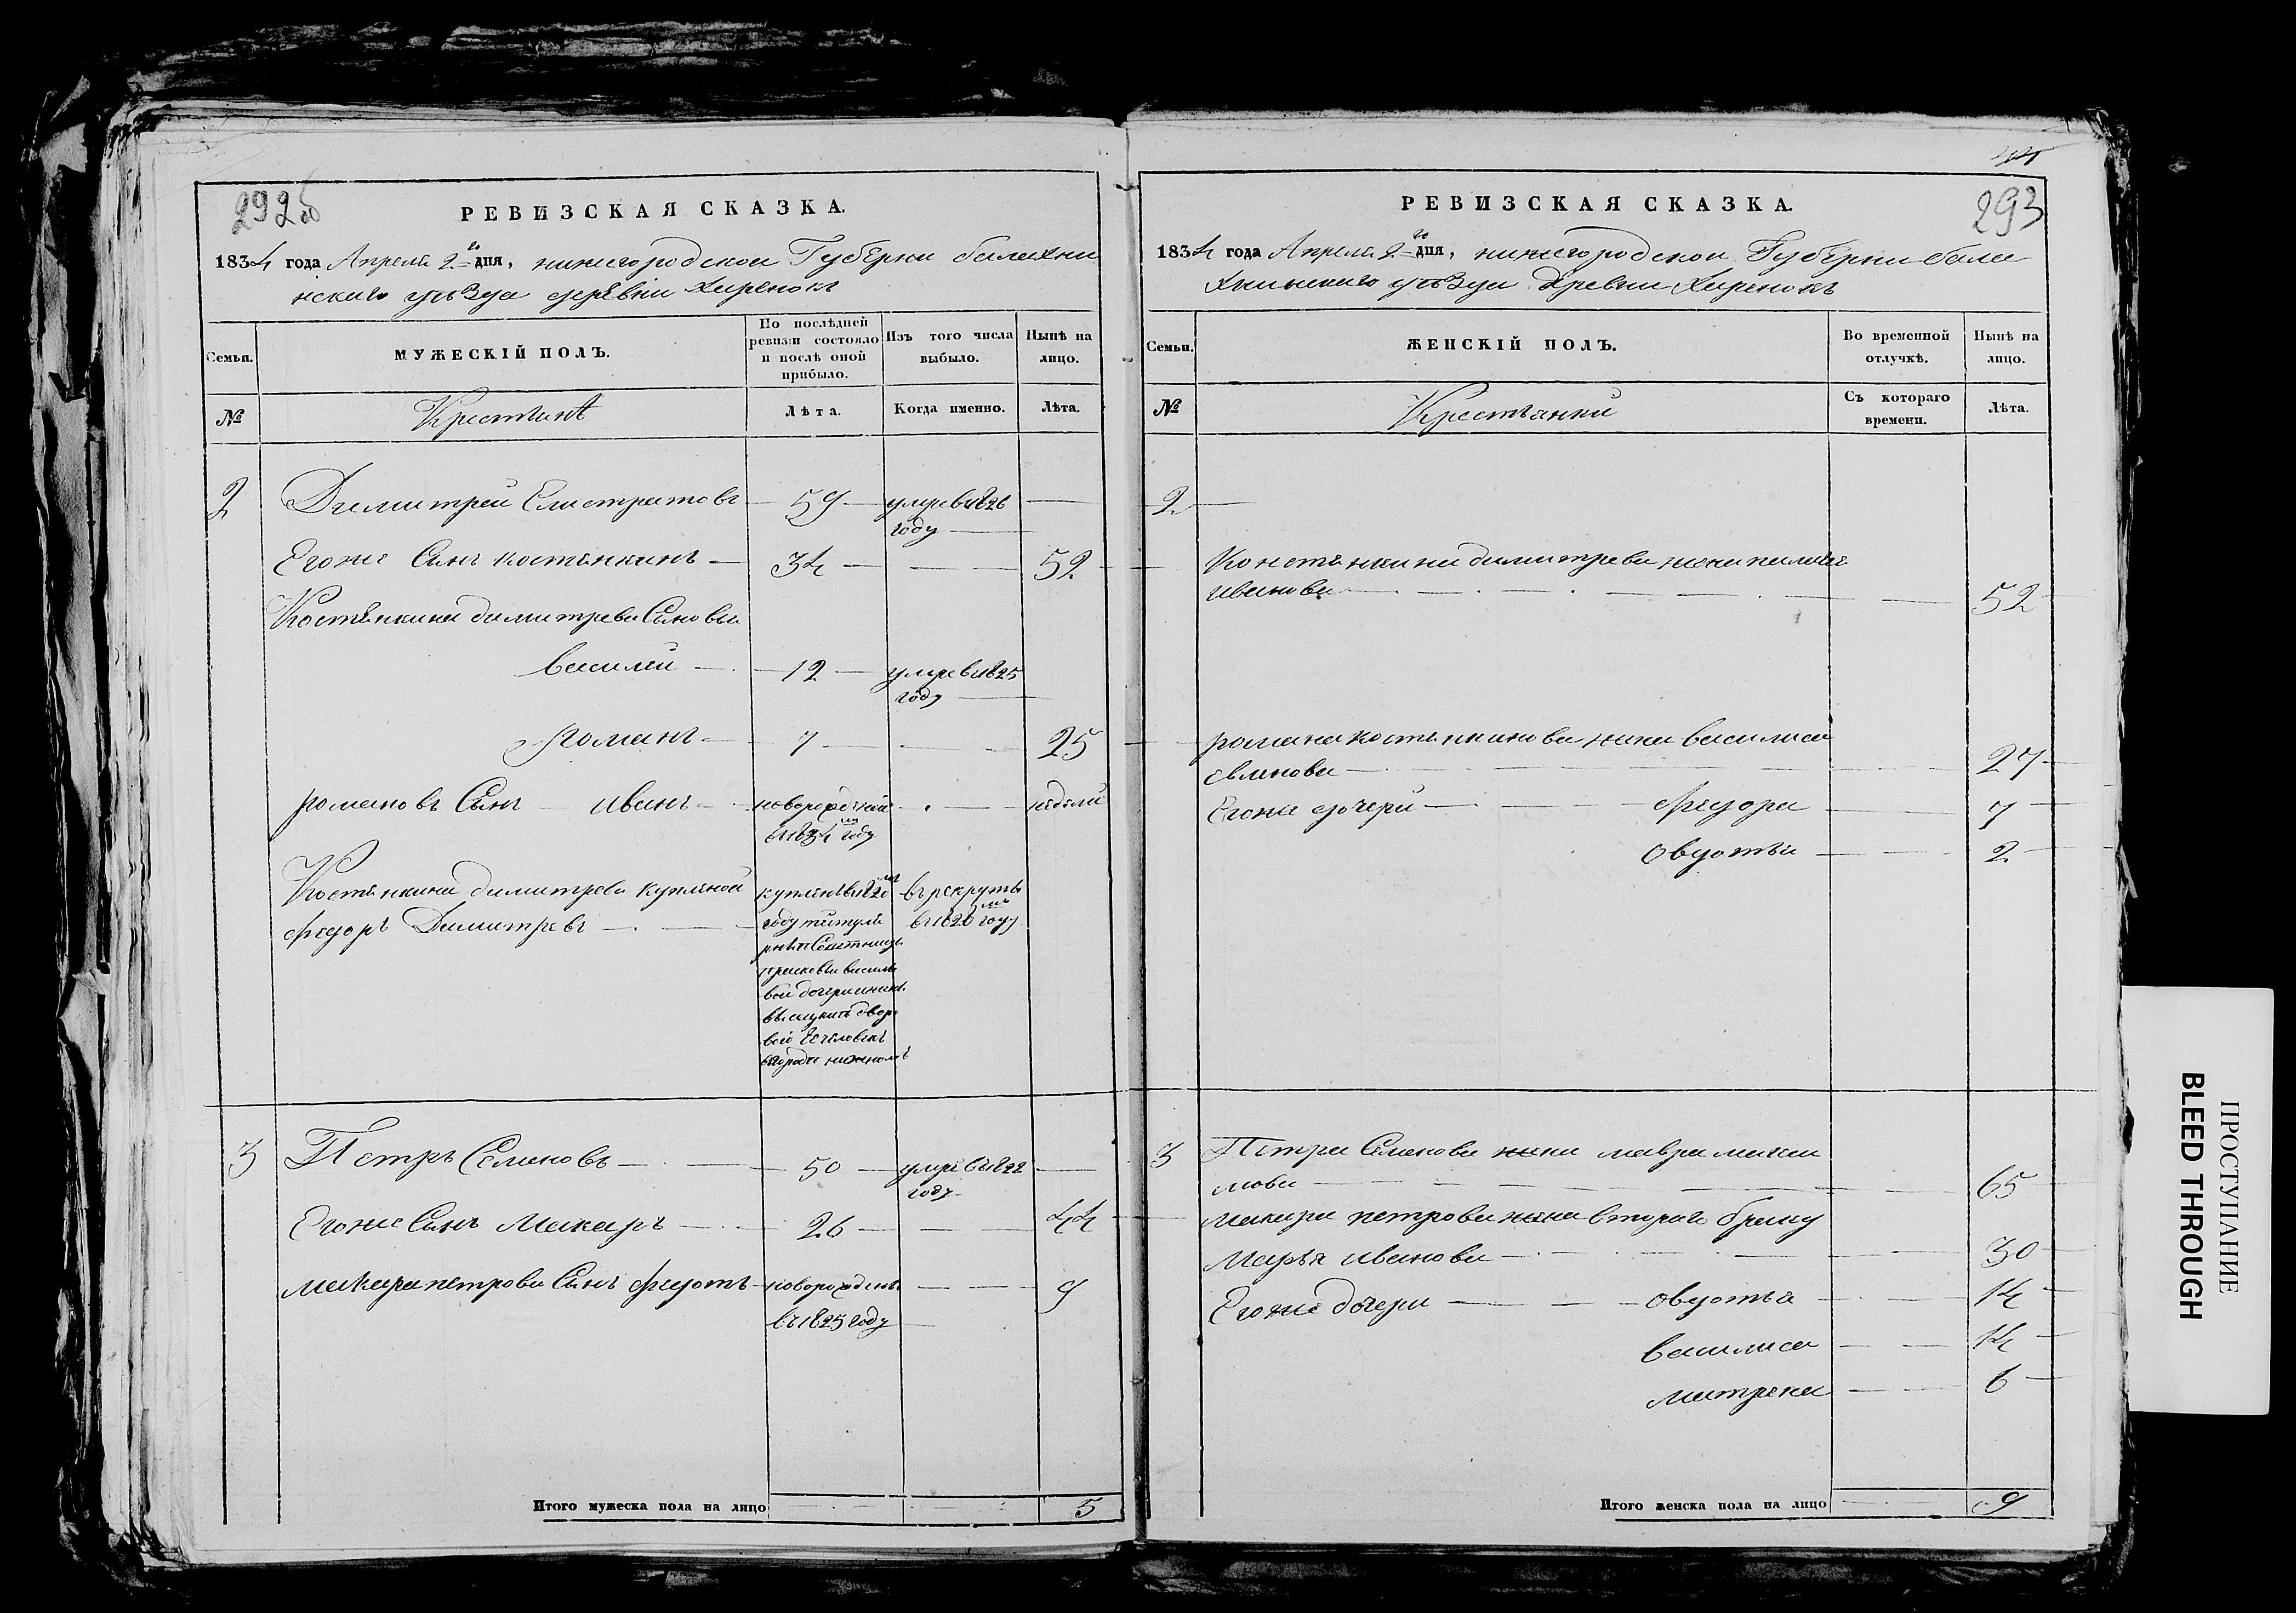 292 об
РЕВИЗСКАЯ СКАЗКА.
1834 года Апреля 2го дня, нижегородской Губерни балахни
нскаго уѣзда деревни Хиренокъ
Семьи.
МУЖЕСКІЙ ПОЛЪ.
По послѣдней
ревизіи состояло
и послѣ оной
прибыло.
Изъ того числа
выбыло.
Нынѣ на
лицо.
№
Крестьянѣ
Лѣта.
Когда именно.
Лѣта.
2 Димитрей Елистратовъ — 59 — умре въ 1826 —
году —
Егоже Сынъ костѣнкинъ — 34 — — — 52
Костѣнкина димитрева Сыновья
василей — 12 — умре въ 1825
году —
романъ — 7 — — — 25
романовъ Сынъ иванъ — новорожденой — недели
въ 1834 году
Костѣнкина димитрева купленой купленъ въ 1820 въ рекруты
федоръ Димитревъ — году титуля въ 1820 году
рнѣй Советницы
прасковьи василь
вой дочери
двор
вой человекъ
въ городе нижнемъ
3 Петръ Семеновъ — 50 — умре въ 1822 —
году
Егоже Сынъ Макаръ — 26 — — 44
макара петрова Сынъ федотъ — новорожденъ — — 9
въ 1825 году —
Итого мужеска пола на лицо 5
44
293
РЕВИЗСКАЯ СКАЗКА.
1834 года Апреля 2го дня, нижегородской Губерни бала
хнинскаго уѣзда Древни Хиренокъ
Семьи.
ЖЕНСКІЙ ПОЛЪ.
Во временной
отлучкѣ.
Нынѣ на
лицо.
№
Крестьянки
Съ котораго
времени.
Лѣта.
2 —
Костѣнкина димитрева жена
иванова — 52
романа костѣнкинова жена василиса
27
Егоже дочери — федора — 7
овдотья — 2
3 Петра Семенова жена мавра макси
мова — 65
макара петрова жена втораго браку
Марья иванова — 30
Егоже дочери — овдотья — 14
василиса — 14
матрена — 6
Итого женска пола на лицо 9
ПРОСТУПАНИЕ
BLEED THROUGH